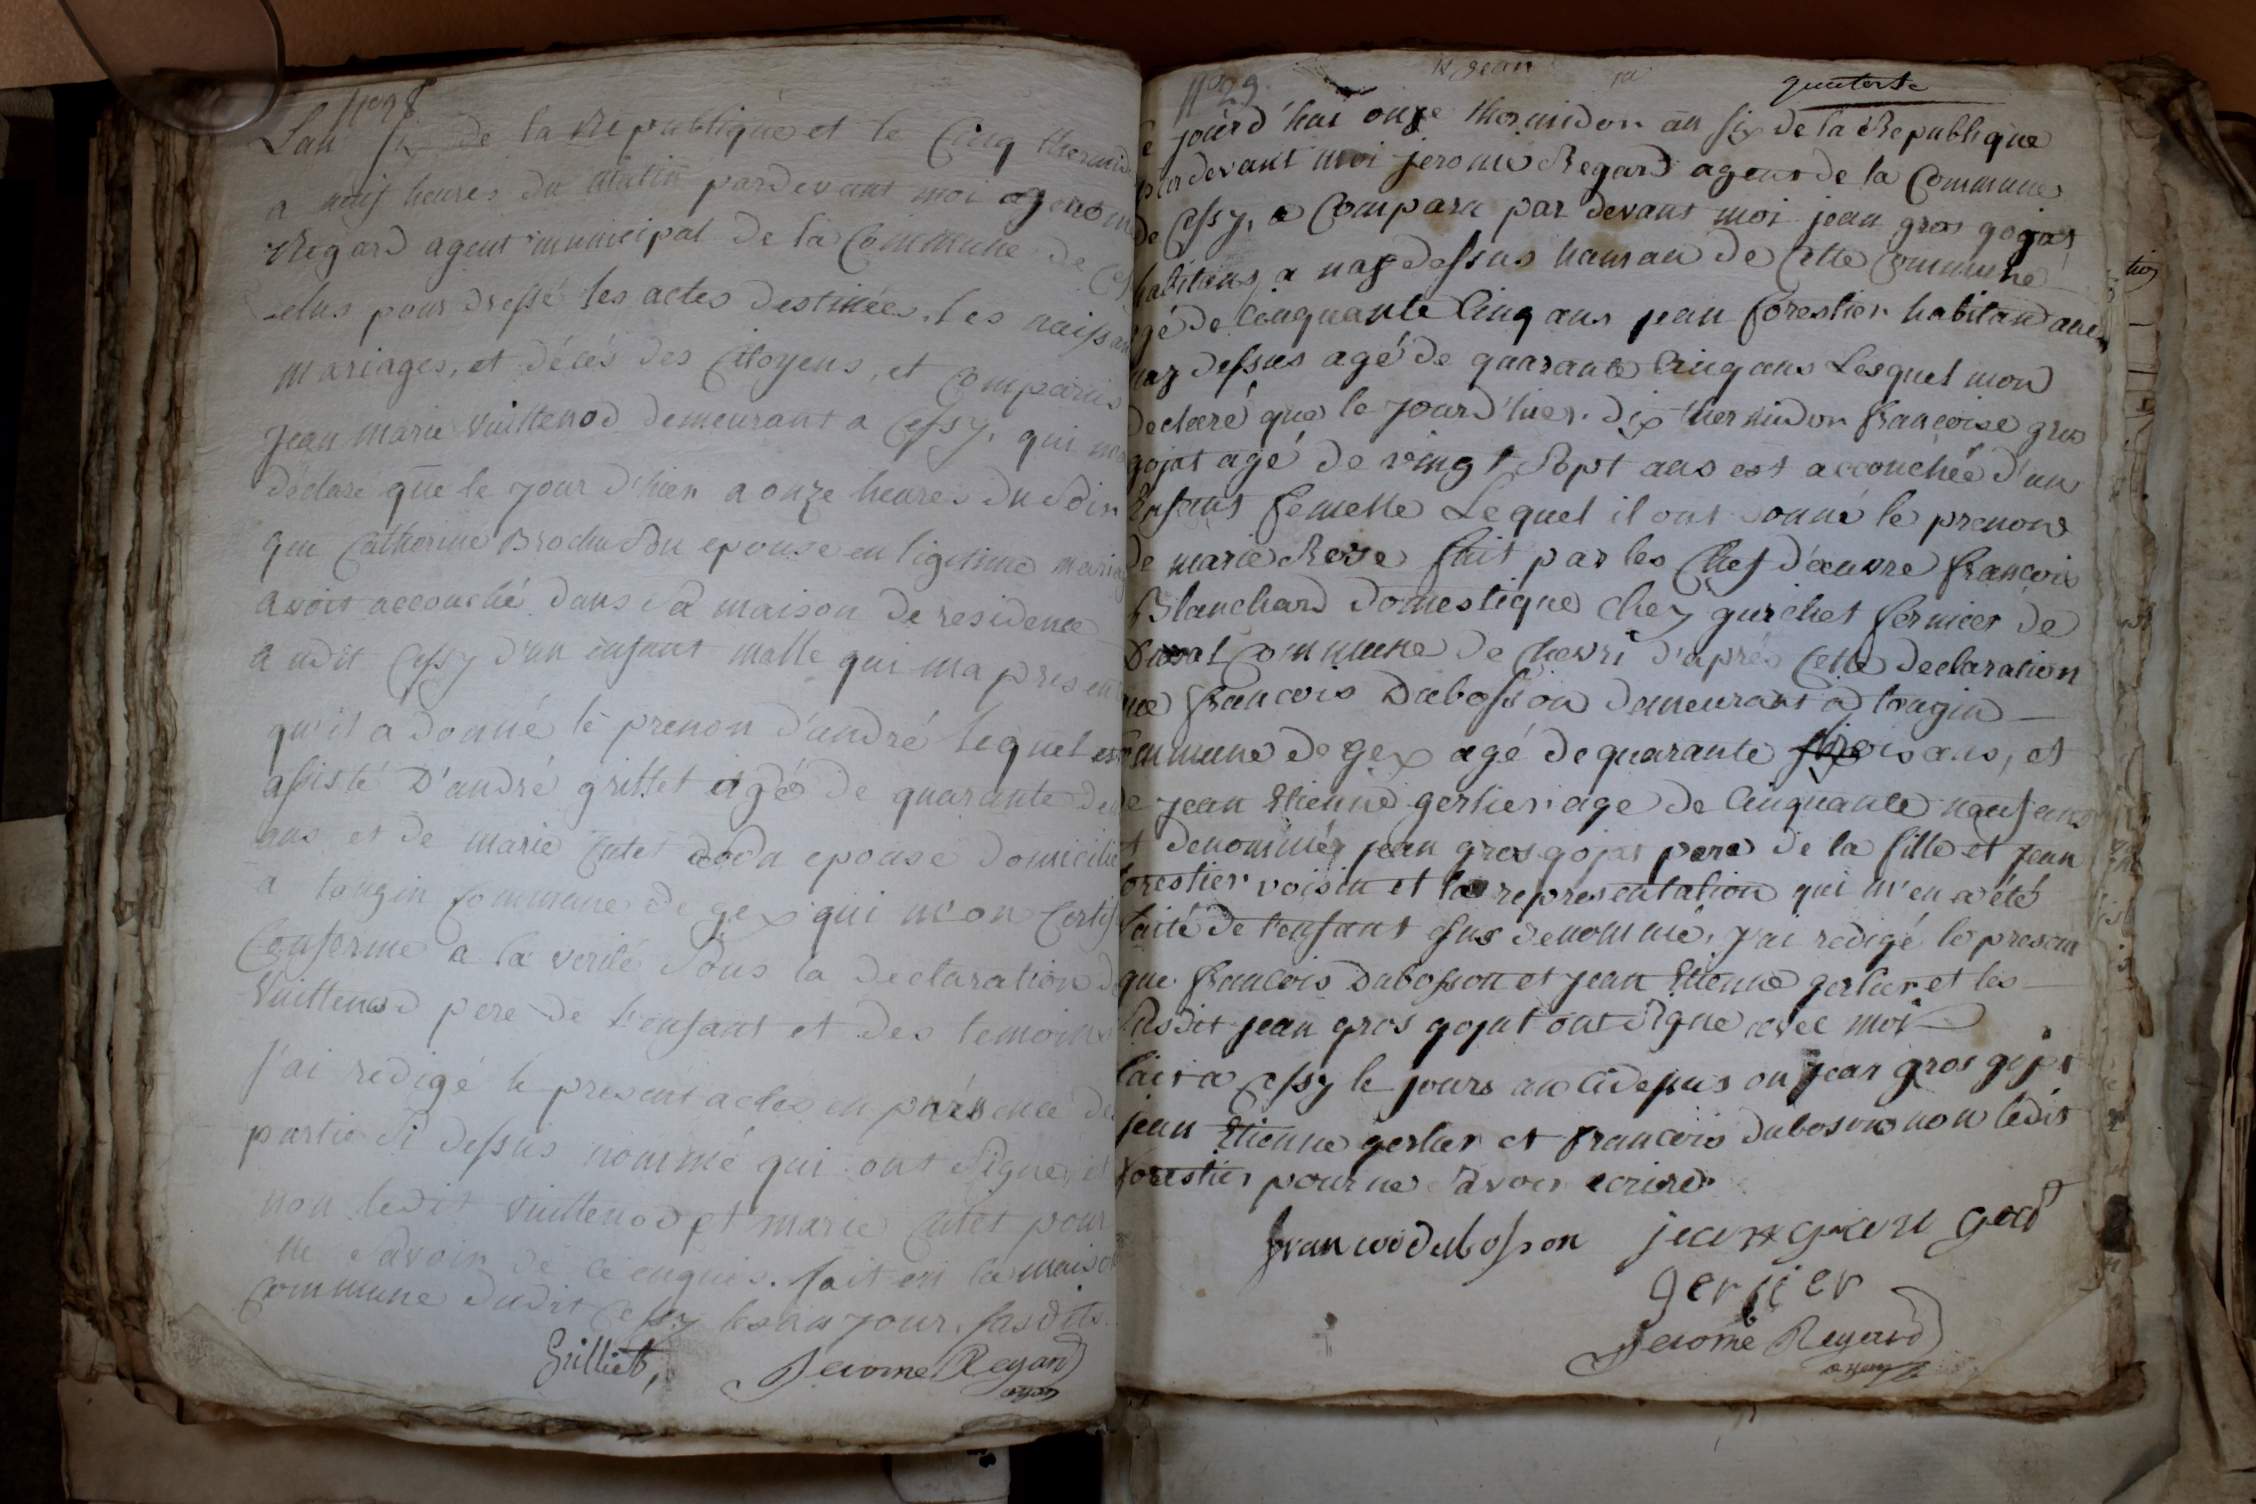 No 28
Lan six de la Republique et le Cinq thermid
a neuf heures du matin pardevant moi gerome
Regard agent municipal de la Commune de Ces
elus pour dressé les actes destinées, les naissan
mariages, et décés des Citoyens, et Comparus
jean marie vuillenod demeurant a Cessy, qui
déclaré que le jour d'hier a onze heures du Soir
que Catherine Brochu Son epouse en ligitime mariag
avoit accouché dans Sa maison de residence
audit Cessy d'un enfant malle qui ma presen
qu'il a donné le prenon d'andré lequel est
assisté D'andré grillet agé de quarante deu
ans et de marie Cutet epouse domicilié
a tougin Commune de gex qui mon Certif
Conforme a la verité Sous la declaration d
Vuillenod pere de l'enfant et des temoins
J'ai redigé le present actes en présence de
partie Si dessus nommé qui ont Signe, et
non ledit vuillenod et marie Cutet pour
ne Savoir de ce enquis. fait en la maison
Commune dudit Cessy les an jour, susdits
Grilliet, Jerome Regard
agen
No 29
quatorse
jourd'hui onze thermidor an six de la Republique
par devant moi jerome Regard agent de la Commune
de Cessy, a Comparu par devant moi jean gros gojat
habitans a naz dessus hamau de Cette Commune
gé de Cinquante Cinq ans jean forestier habitand au
naz dessus agé de quarante Cinq ans Lesquel mon
declaré que le jourd'hier. dix thermidor françoise gros
gojat agé de vingt Sept ans est accouchée d'un
Enfant femelle Lequel il ont donné le prenom
de marie Rose fait par les Chef d'oeuvre françois
Blanchard domestique chez gurchet fermier de
Commune de Chevri d'aprés Cette declaration
ue francois Dubosson demeurant a tougin
ommune de gex agé de quarante trois ans, et
de jean Etienne gerlier age de Cinquante neuf ans
denommés jean gros gojat pere de la fille et jean
forestier voisin et la representation qui m'en a été
faité de l'enfant Sus denommé, j'ai redigé le presan
que francois Dubosson et jean Etienne gerlier et les
Susdit jean gros gojat ont Signe avec moi
fait a Cessy le jours an Cidesus on jean gros gojat
jean Etienne gerlier et francois duboson non ledit
forestier pour ne Savoir ecrire
francoi dubosson jean grau god
gerlier
Jerome Regard
agen